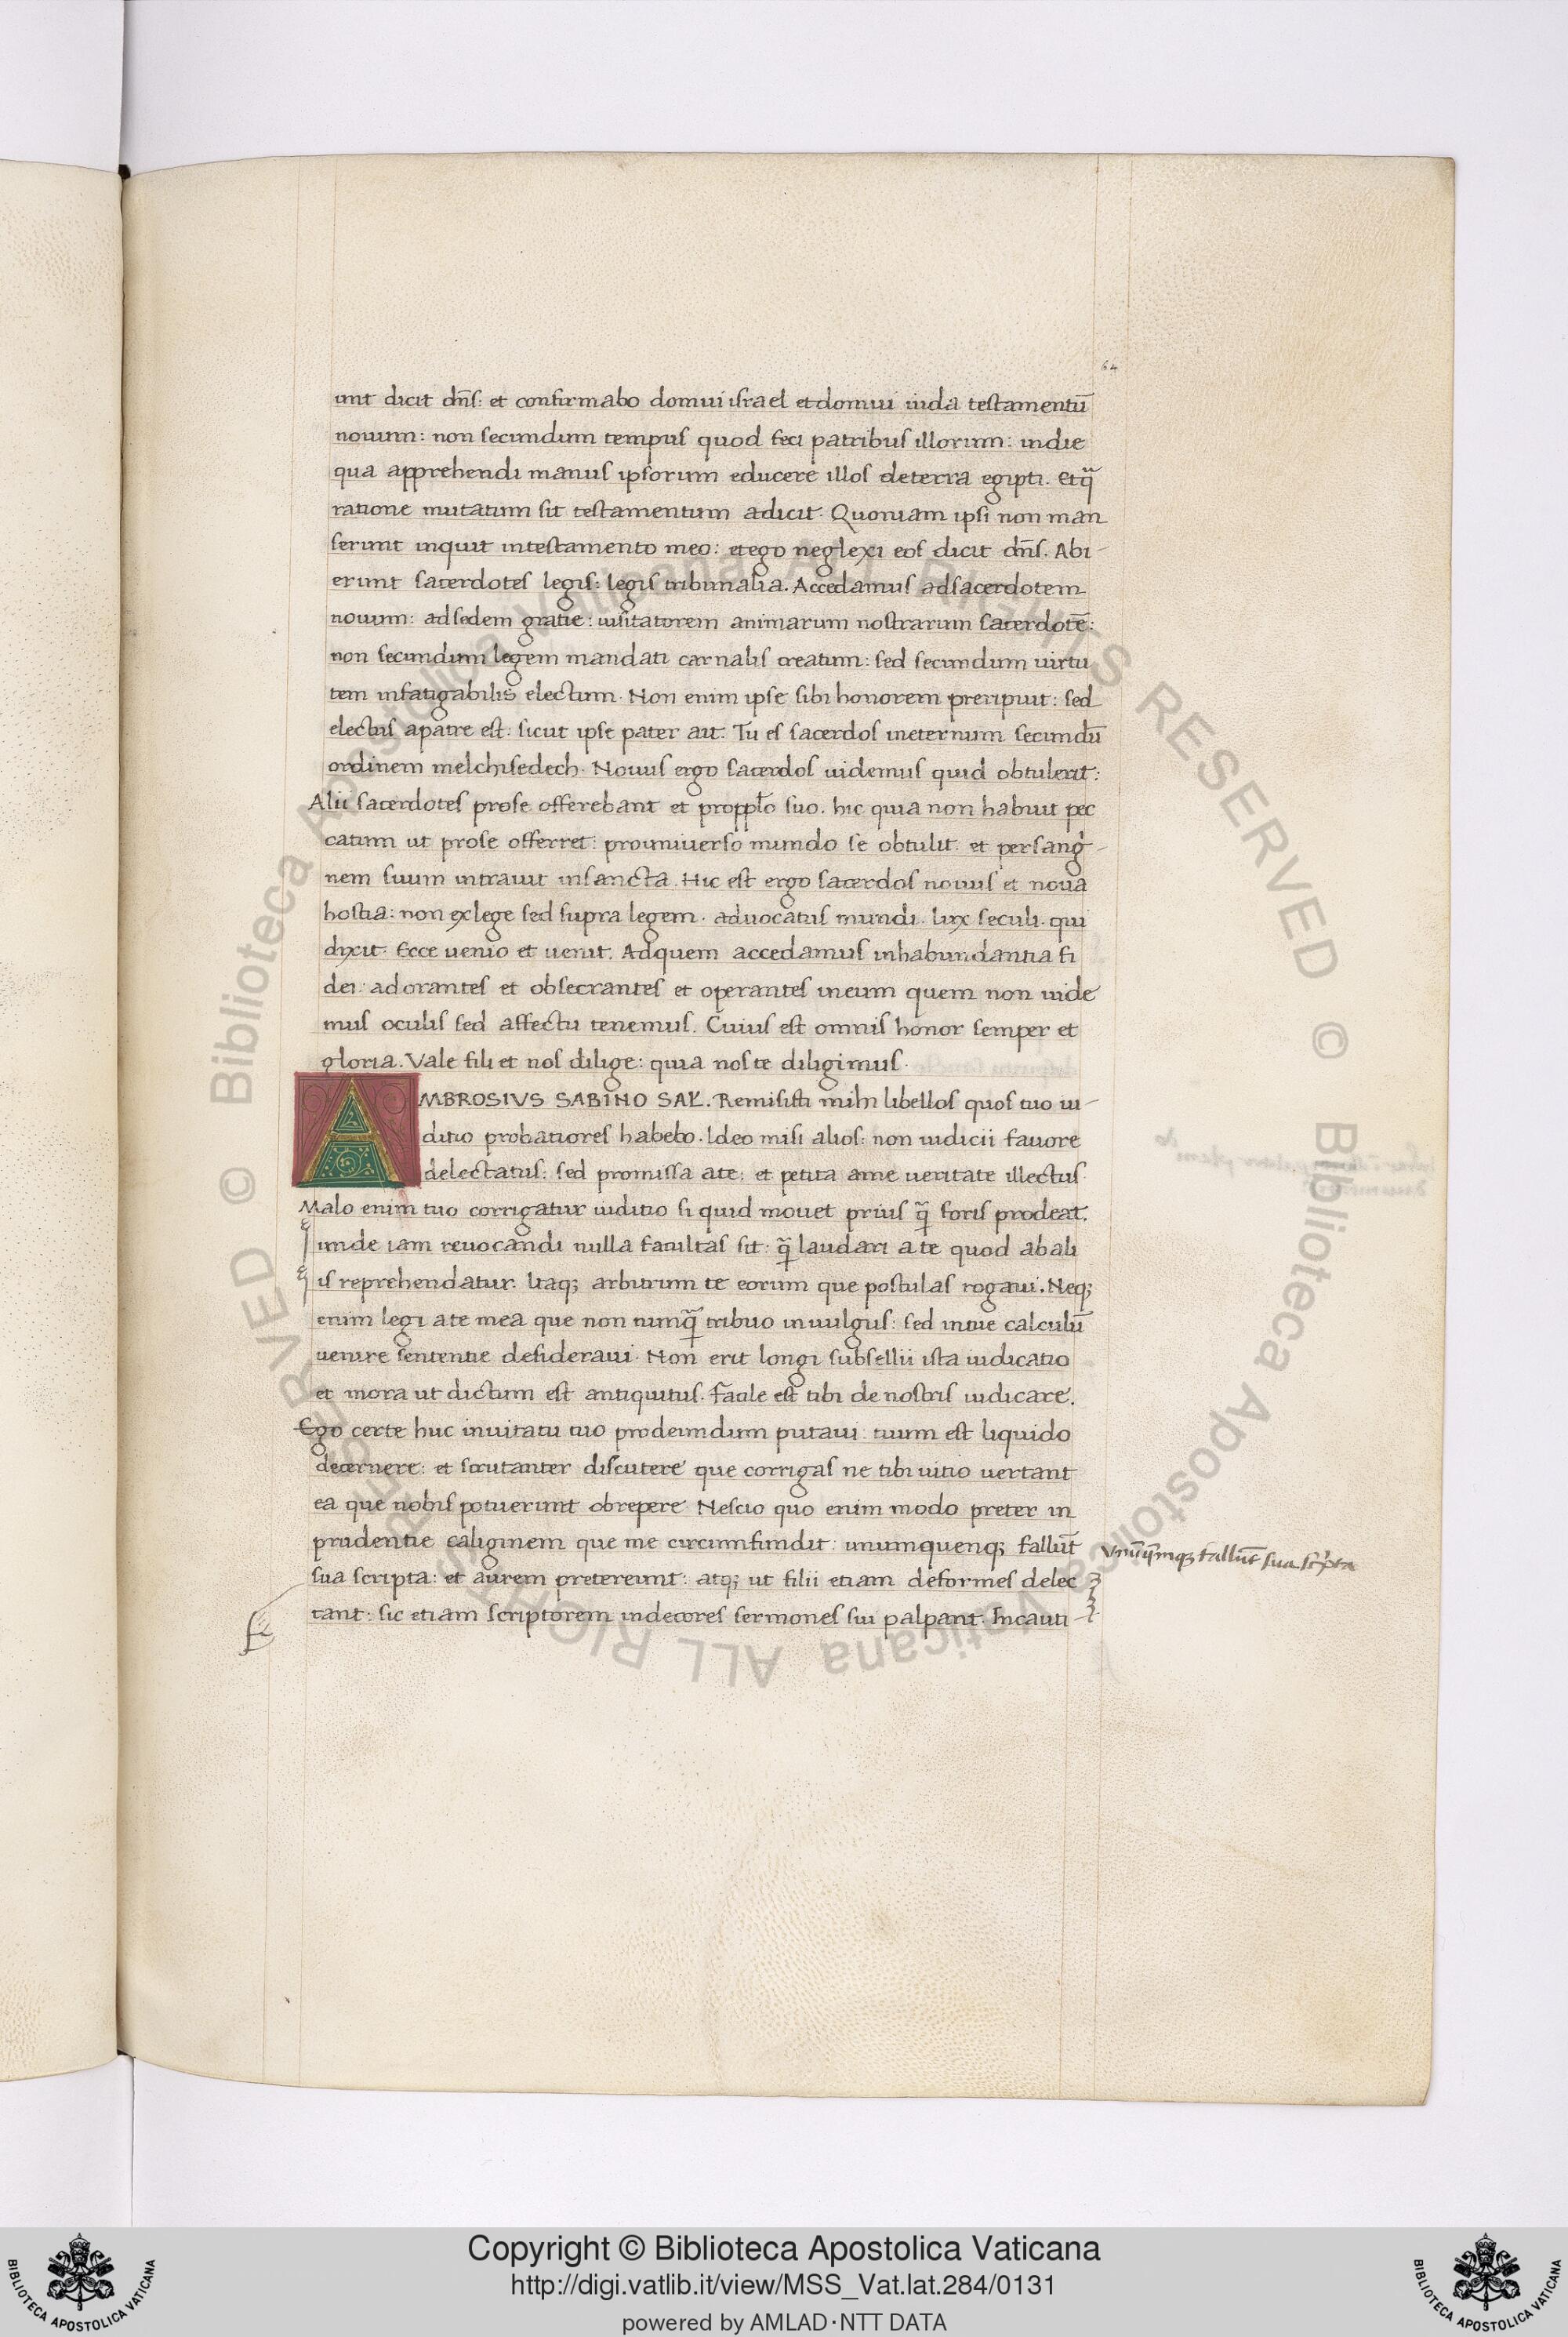 64
unt dicit dn̄s: et confirmabo domui israel et domui iuda testamentū
nouum: non secundum tempus quod feci patribus illorum: in die
qua apprehendi manus ipsorum educere illos de terra egipti. Et q̄
ratione mutatum sit testamentum adicit. Quoniam ipsi non man
serunt inquit in testamento meo: et ego neglexi eos dicit dn̄s. Abi-
erunt sacerdotes legis: legis tribunalia. Accedamus ad sacerdotem
nouum: ad sedem gratie: uisitatorem animarum nostrarum sacerdotē:
non secundum legem mandati carnalis creatum: sed secundum uirtu
tem infatigabilis electum. Non enim ipse sibi honorem preripuit: sed
electus a patre est: sicut ipse pater ait. Tu es sacerdos in eternum secundū
ordinem melchisedech. Nouus ergo sacerdos uidemus quid obtulerit:
Alii sacerdotes pro se offerebant et pro pplo suo. hic quia non habuit pec
catum ut pro se offerret: pro uniuerso mundo se obtulit. et per sang-
nem suum intrauit in sancta. Hic est ergo sacerdos nouus et noua
hostia: non ex lege sed supra legem. aduocatus mundi. lux seculi. qui
dixit. Ecce uenio et uenit. Ad quem accedamus in habundantia fi
dei: adorantes et obsecrantes et operantes in eum quem non uide
mus oculis sed affectu tenemus. Cuius est omnis honor semper et
gloria. Vale fili et nos dilige: quia nos te diligimus.
AMBROSIVS SABINO SAL̄. Remisisti mihi libellos quos tuo iu-
ditio probatiores habebo. Ideo misi alios: non iudicii fauore
delectatus: sed promissa a te: et petita a me ueritate illectus.
Malo enim tuo corrigatur iuditio si quid mouet prius q̄ foris prodeat.
unde iam reuocandi nulla facultas sit: q̄ laudari a te quod ab ali
is reprehendatur. Itaq; arbitrum te eorum que postulas rogaui. Neq;
enim legi a te mea que non nunq̄ tribuo in uulgus: sed in tue calculū
uenire sententie desideraui. Non erit longi subsellii ista iudicatio
et mora ut dictum est antiquitus. Facile est tibi de nostris iudicare.
Ego certe huc inuitatu tuo prodeundum putaui: tuum est liquido
decernere: et scrutanter discutere que corrigas ne tibi uitio uertant
ea que nobis potuerunt obrepere. Nescio quo enim modo preter in
prudentie caliginem que me circumfundit: unumquenq; fallūt
sua scripta: et aurem pretereunt: atq; ut filii etiam deformes delec
tant: sic etiam scriptorem indecores sermones sui palpant. Incauti-
Vnūq̄mq; fallūt sua scripta
© Biblioteca Apostolica Vaticana ALL RIGHTS RESERVED © Biblioteca Apostolica Vaticana ALL RIGHTS RESERVED
Copyright © Biblioteca Apostolica Vaticana
http://digi.vatlib.it/view/MSS_Vat.lat.284/0131
powered by AMLAD·NTT DATA
BIBLIOTECA APOSTOLICA VATICANA
BIBLIOTECA APOSTOLICA VATICANA